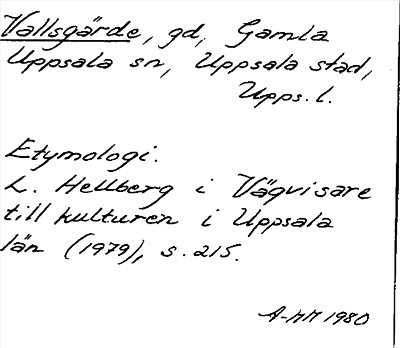 Vallsgärde, gd, Gamla
Uppsala sn, Uppsala stad,
Upps. l.
Etymologi.
L. Hellberg i Vägvisare
till kulturen i Uppsala
län (1979), s. 215.
A-MM 1980